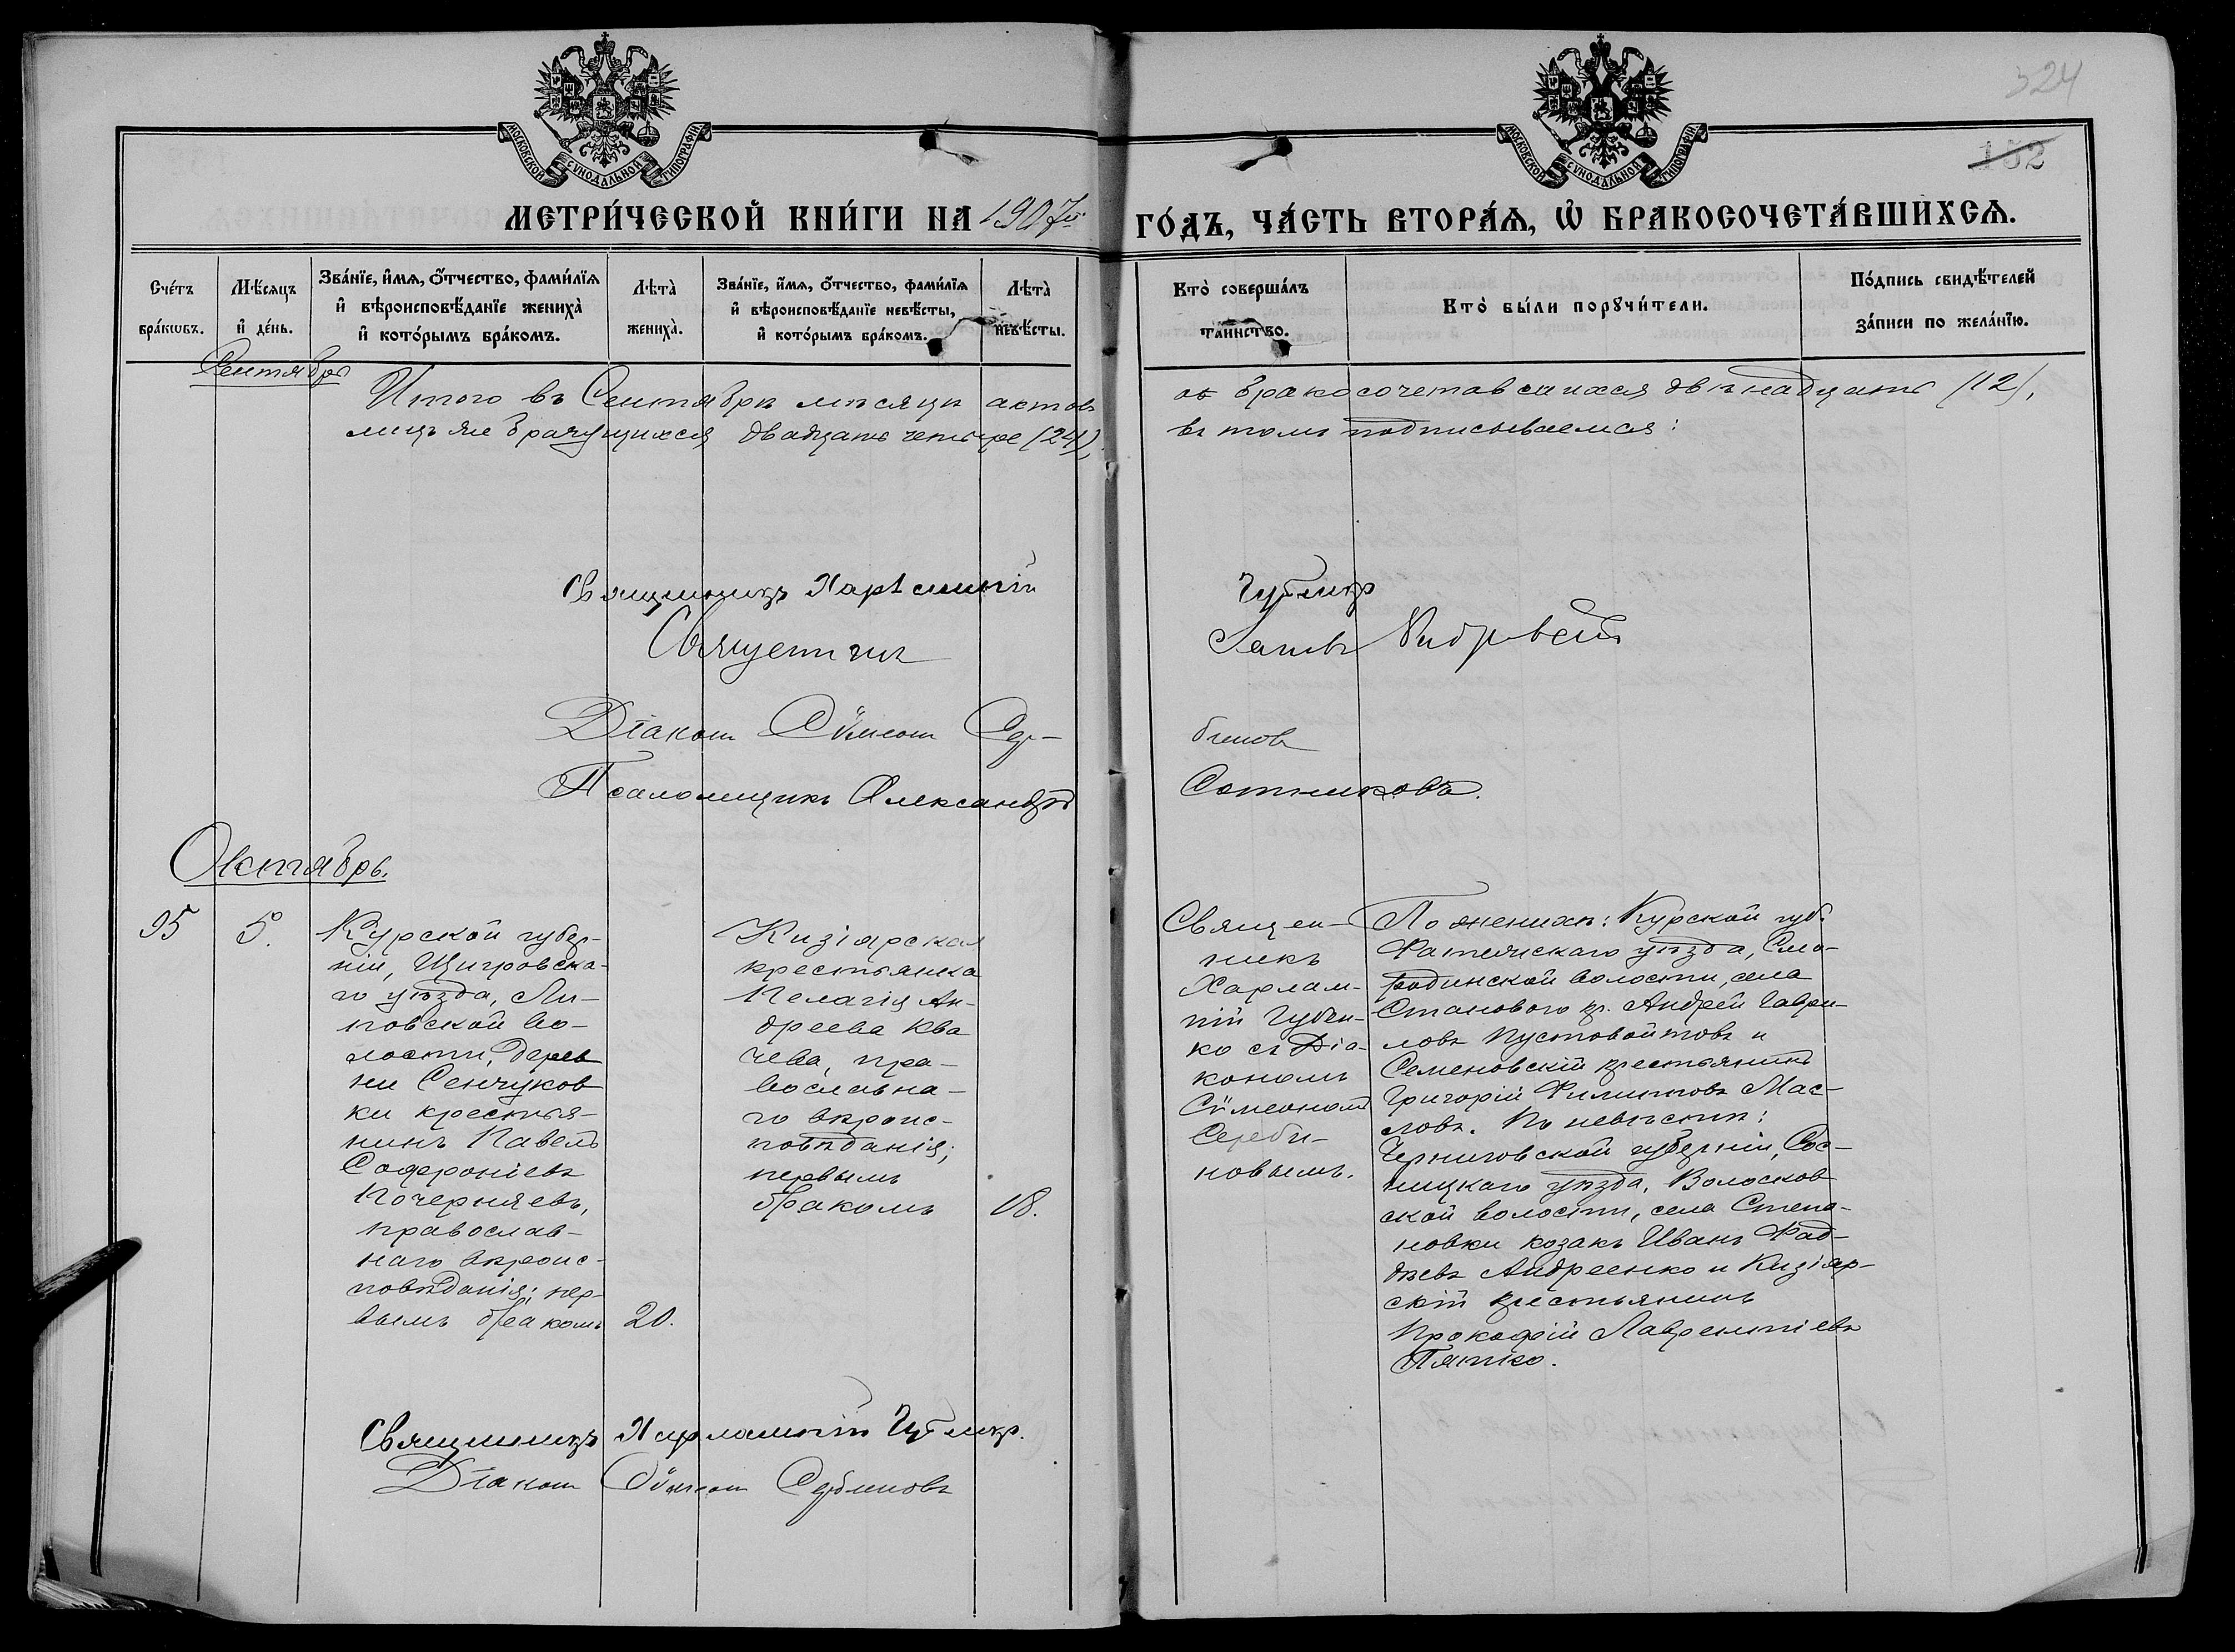 324
152
МОСКОВСКОЙ СѴНОДАЛЬНОЙ ТИПОГРАФІИ
МОСКОВСКОЙ СѴНОДАЛЬНОЙ ТИПОГРАФІИ
МЕТРИ́ЧЕСКОЙ КНИ́ГИ НА 1907й ГО́ДЪ, ЧА́СТЬ ВТОРА́Ѧ, Ѡ҆ БРАКОСОЧЕТА́ВШИХСѦ.
Сче́тъ
бра́кѡвъ.
Мѣ́сяцъ
и҆ де́нь.
Зва́нїе, и҆́мѧ, ѻ҆́тчество, фами́лїѧ
и҆ вѣроисповѣ́данїе жениха̀
и҆ кото́рымъ бра́комъ.
Лѣта̀
жениха̀.
Зва́нїе, и҆́мѧ, ѻ҆́тчество, фами́лїѧ
и҆ вѣроисповѣ́данїе невѣ́сты,
и҆ кото́рымъ бра́комъ.
Лѣта̀
невѣ́сты.
Кто̀ соверша́лъ
та́инство.
Кто̀ бы́ли порꙋчи́тели.
По́дпись свидѣ́телей
за́писи по жела́нїю.
Сентябрь
Итого въ Сентябрѣ мѣсяцѣ актовъ о бракосочетавшихся двѣнадцать (12),
лицъ же брачущихся двадцать четыре (24), въ томъ подписываемся:
Священникъ Харлампій Губенко
Священникъ
Діаконъ Сѵмеонъ Сер-
биновъ
Псаломщикъ Александръ Сотниковъ.
Октябрь.
95
5.
Курской губер-
ніи, Щигровска-
го уѣзда, Ли-
повской во-
лости, дерев
ни Сенчуков
ки крестья-
нинъ Павелъ
Софроніевъ
Почерняевъ,
православ-
наго вѣроис-
повѣданія; пер-
вымъ бракомъ
20.
Кизіярская
крестьянка
Пелагія Ан-
дреева Ква
чева, пра-
вославна-
го вѣроис-
повѣданія;
первымъ
бракомъ
18.
Священ-
никъ
Харлам-
пій Губен-
ко съ Діа-
кономъ
Сѵмеономъ
Серби-
новымъ.
По женихѣ: Курской губ.
Фатежскаго уѣзда, Смо-
родинской волости, села
Станового кр. Андрей Гаври-
ловъ Пустовойтовъ и
Семеновскій крестьянинъ
Григорій Филиповъ Мас-
ловъ. По невѣстѣ:
Черниговской губерніи, Сос-
ницкаго уѣзда, Волосков
ской волости, села Степа-
новки козакъ Иванъ Фад-
дѣевъ Андреенко и Кизіяр-
скій крестьянинъ
Прокофій Лаврентіевъ
Пятко.
Священникъ Харлампій Губенко.
Діаконъ Сѵмеонъ Сербиновъ